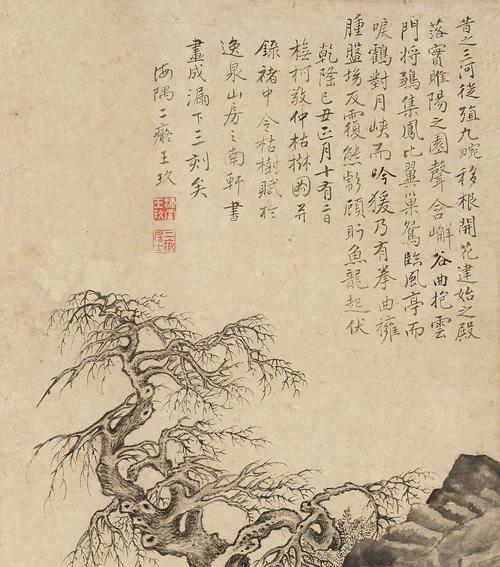 昔之三河徙殖九畹移根開花建始之殿
落實睢陽之園聲含嶰谷曲抱雲
門將鶵集鳳比翼巢鴛臨風亭而
唳鶴對月峽而吟猨乃有拳曲擁
腫盤坳反覆熊彪顧盻魚龍起伏
乾隆己丑正月十有二日
橅柯敬仲枯楙圖并
錄褚中令枯樹賦於
逸泉山房之南軒書
畫成漏下三刻矣
海隅二癡王玖